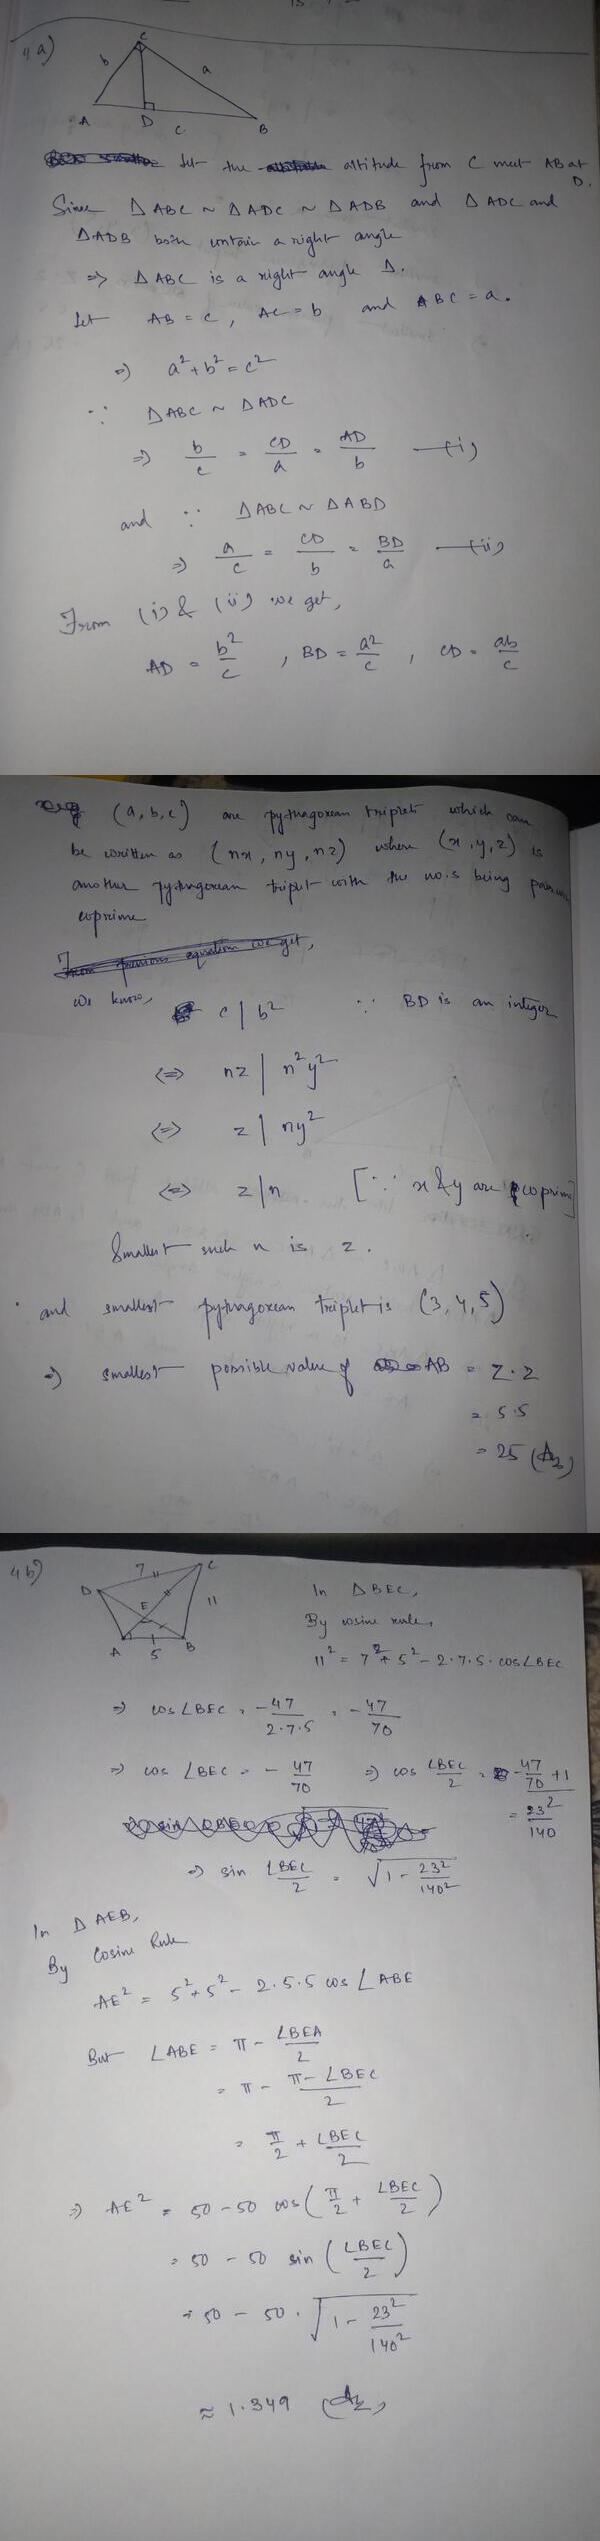 4a)
C
b
a
A
D
c
B
Let the altitude from C meet AB at D.
Since △ABC ~ △ADC ~ △ADB and △ADC and
△ADB both contain a right angle
⇒ △ABC is a right angle △.
Let AB = c, AC = b and BC = a.
⇒ a² + b² = c²
∵ △ABC ~ △ADC
⇒ b/c = CD/a = AD/b —(i)
and ∵ △ABC ~ △ABD
⇒ a/c = CD/b = BD/a —(ii)
From (i) & (ii) we get,
AD = b²/c , BD = a²/c , CD = ab/c
(a, b, c) are pythagorean triplets which can
be written as (nx, ny, nz) where (x, y, z) is
another pythagorean triplet with the no.s being pairwise
coprime
From previous equation we get,
we know, c | b² ∵ BD is an integer
⇔ nz | n²y²
⇔ z | ny²
⇔ z | n [∵ x & y are coprime]
Smallest such n is z.
and smallest pythagorean triplet is (3, 4, 5)
⇒ smallest possible value of AB = z·z
= 5·5
= 25 (Ans)
4b)
7
C
D
E
11
A
5
B
In △BEC,
By cosine rule,
11² = 7² + 5² - 2·7·5·cos∠BEC
⇒ cos∠BEC = -47/2·7·5 = -47/70
⇒ cos∠BEC = -47/70 ⇒ cos ∠BEC/2 = -47/70 + 1
= 23²/140
⇒ sin ∠BEC/2 = √(1 - 23²/140²)
In △AEB,
By Cosine Rule
AE² = 5² + 5² - 2·5·5 cos∠ABE
But ∠ABE = π - ∠BEA/2
= π - (π - ∠BEC)/2
= π/2 + ∠BEC/2
⇒ AE² = 50 - 50 cos(π/2 + ∠BEC/2)
= 50 - 50 sin(∠BEC/2)
= 50 - 50 · √(1 - 23²/140²)
≈ 1.349 (Ans)